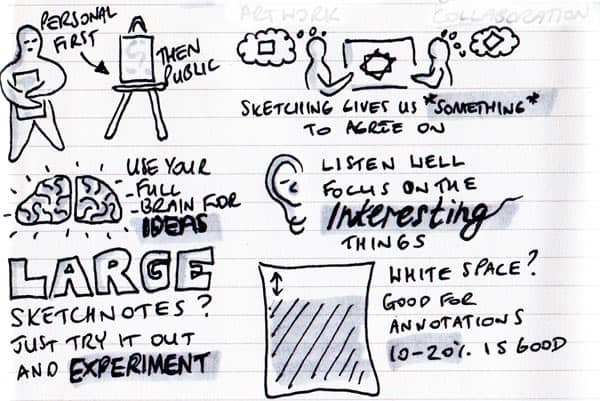 ARTWORK
COLLABORATION
PERSONAL
FIRST
THEN
PUBLIC
SKETCHING GIVES US *SOMETHING*
TO AGREE ON
USE YOUR
- FULL
- BRAIN FOR
IDEAS
LISTEN WELL
FOCUS ON THE
Interesting
THINGS
LARGE
SKETCHNOTES?
JUST TRY IT OUT
AND EXPERIMENT
WHITE SPACE?
GOOD FOR
ANNOTATIONS
10-20% IS GOOD